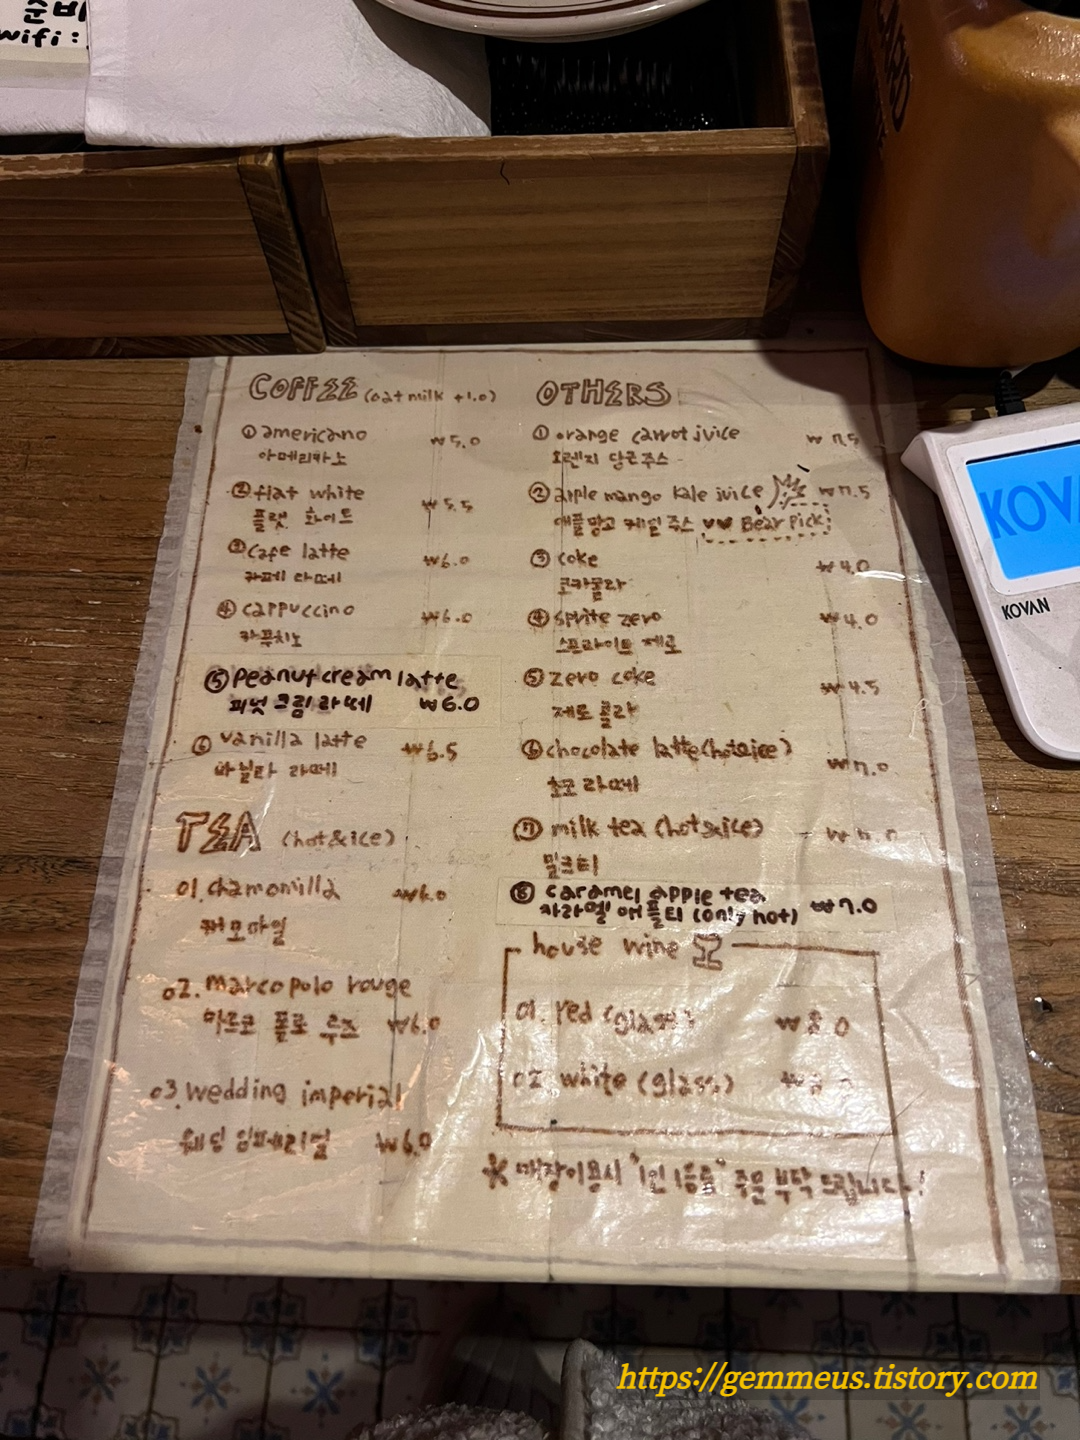 준비
wifi:
COFFEE (oat milk +1.0)
① americano ₩5.0
아메리카노
② flat white ₩5.5
플랫 화이트
③ cafe latte ₩6.0
카페 라떼
④ cappuccino ₩6.0
카푸치노
⑤ peanut cream latte
피넛 크림 라떼 ₩6.0
⑥ vanilla latte ₩6.5
바닐라 라떼
TEA (hot&ice)
01. chamomilla ₩6.0
캐모마일
02. marcopolo rouge
마르코 폴로 루즈 ₩6.0
03. wedding imperial
웨딩 임페리얼 ₩6.0
OTHERS
① orange carrot juice ₩7.5
오렌지 당근주스
② apple mango kale juice ₩7.5
애플망고 케일 주스 ♥♥ Bear Pick!
③ coke ₩4.0
코카콜라
④ sprite zero ₩4.0
스프라이트 제로
⑤ zero coke ₩4.5
제로 콜라
⑥ chocolate latte (hot&ice) ₩7.0
초코 라떼
⑦ milk tea (hot&ice)
밀크티
⑧ caramel apple tea
카라멜 애플티 (only hot) ₩7.0
house wine
01. red (glass) ₩8.0
02. white (glass)
* 매장이용시 "1인 1음료" 주문 부탁 드립니다!
KOVAN
https://gemmeus.tistory.com